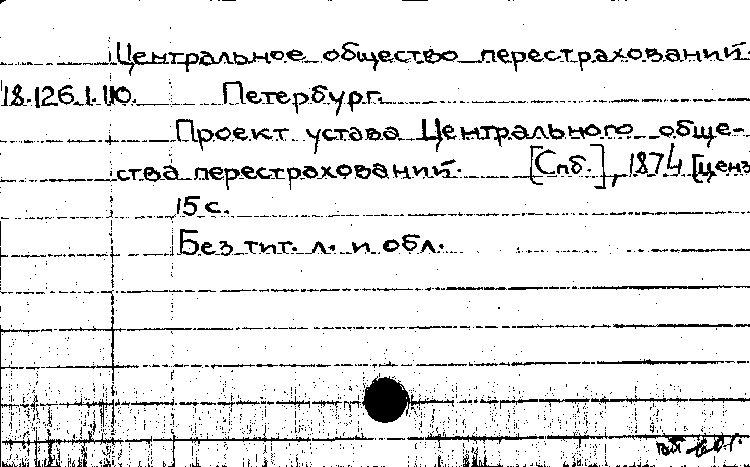 Центральное общество перестрахований.
18.126.1.110. Петербург.
Проект устава Центрального обще-
ства перестрахований. [Спб.], 1874 [ценз
15 с.
Без тит. л. и обл.